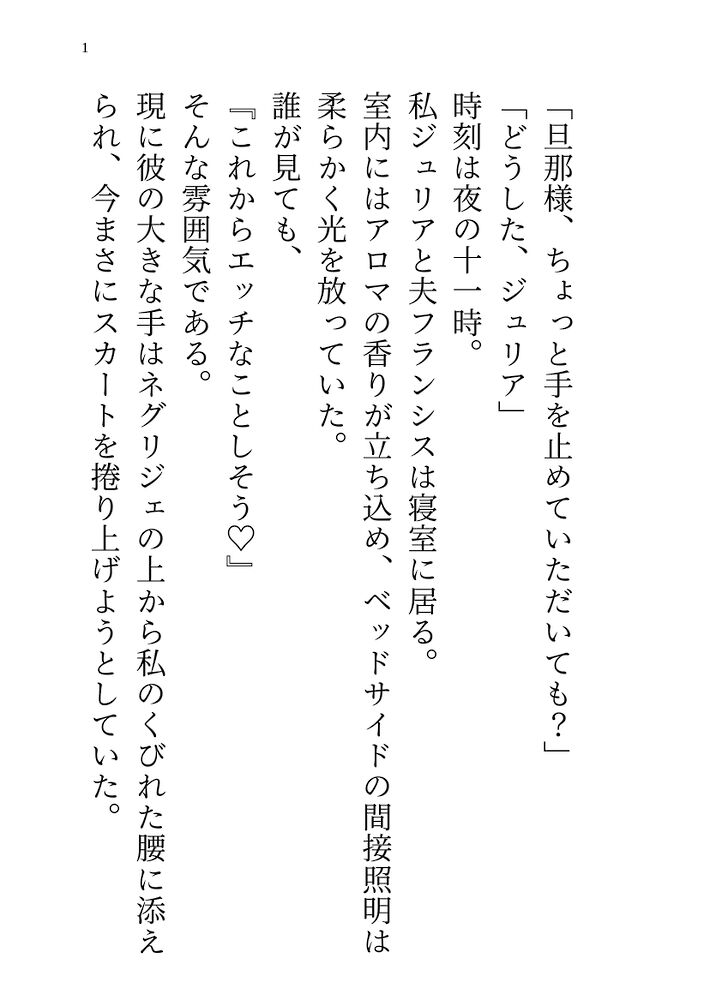 1
「旦那様、ちょっと手を止めていただいても？」
「どうした、ジュリア」
時刻は夜の十一時。
私ジュリアと夫フランシスは寝室に居る。
室内にはアロマの香りが立ち込め、ベッドサイドの間接照明は
柔らかく光を放っていた。
誰が見ても、
『これからエッチなことしそう♡』
そんな雰囲気である。
現に彼の大きな手はネグリジェの上から私のくびれた腰に添え
られ、今まさにスカートを捲り上げようとしていた。